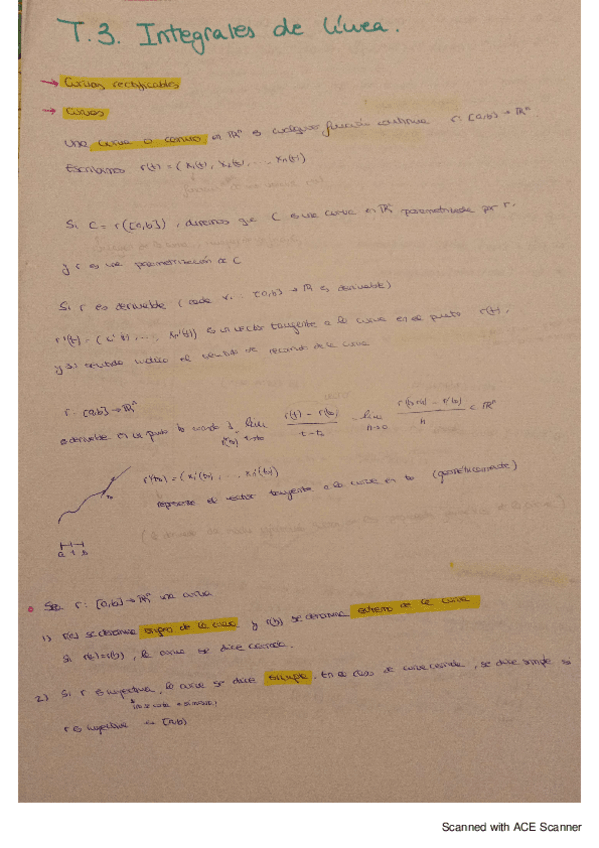 T.3. Integrales de línea.
→ Curvas rectificables
→ Curvas
Una curva o camino en ℝⁿ es cualquier función continua r: [a,b] → ℝⁿ.
Escribimos r(t) = (x₁(t), x₂(t), ..., xₙ(t))
Si C = r([a,b]), diremos que C es una curva en ℝⁿ parametrizada por r.
y r es una parametrización de C
Si r es derivable (cada xᵢ: [a,b] → ℝ es derivable)
r'(t) = (x₁'(t), ..., xₙ'(t)) es un vector tangente a la curva en el punto r(t),
y su sentido indica el sentido de recorrido de la curva
r: [a,b] → ℝⁿ
es derivable en un punto t₀ cuando ∃ lim r(t) - r(t₀) / t - t₀ = lim h→0 r(t₀+h) - r(t₀) / h ∈ ℝⁿ
r'(t₀) t→t₀
r'(t₀) = (x₁'(t₀), ..., xₙ'(t₀))
representa el vector tangente a la curva en t₀ (geométricamente)
a t b
Sea r: [a,b] → ℝⁿ una curva
1) r(a) se denomina origen de la curva y r(b) se denomina extremo de la curva
Si r(a) = r(b), la curva se dice cerrada.
2) Si r es inyectiva, la curva se dice simple. En el caso de curva cerrada, se dice simple si
no se corta a sí misma
r es inyectiva en [a,b)
Scanned with ACE Scanner